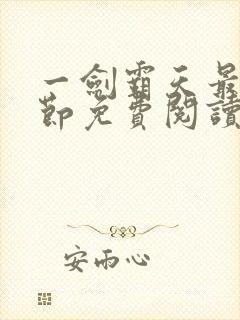 一劍霸天最
節免費閱讀
安雨心